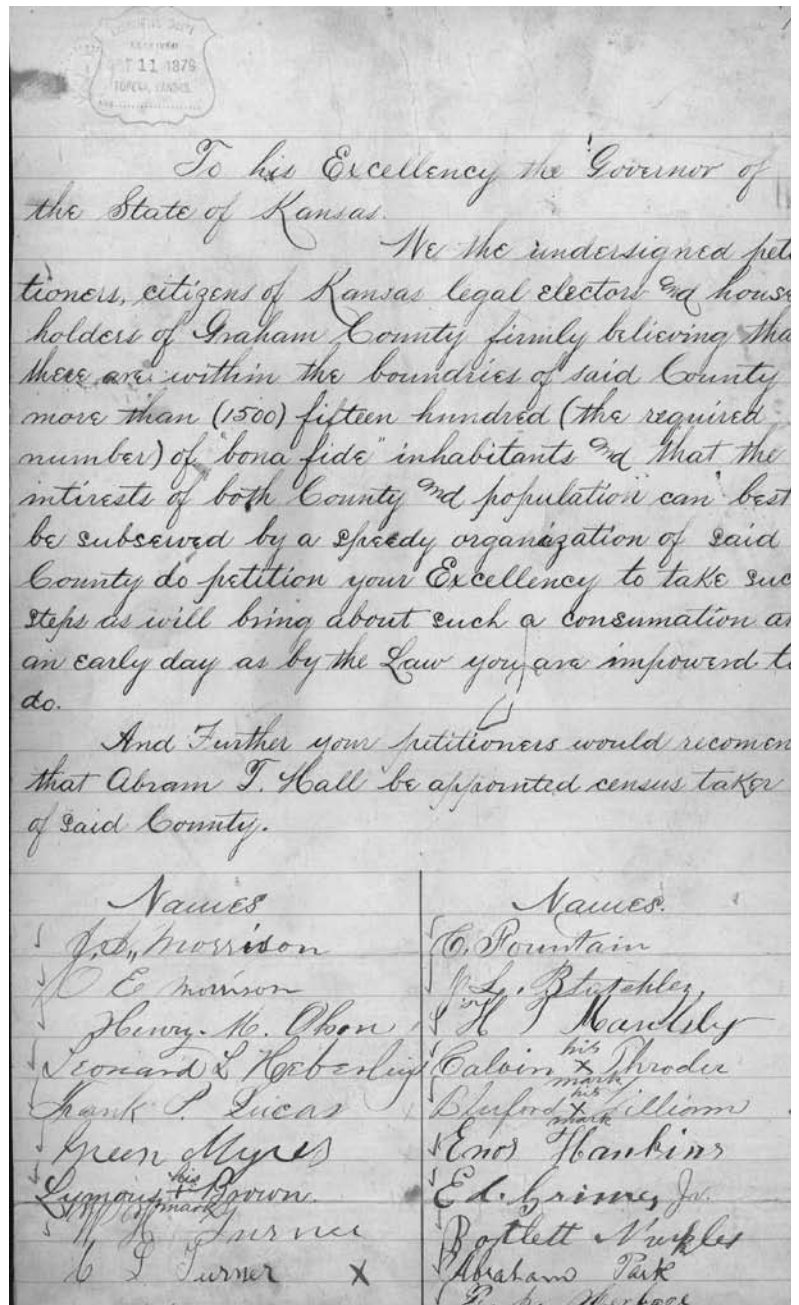 11 1879
TOPEKA, KANSAS.
To his Excellency the Governor of
the State of Kansas.
We the undersigned peti
tioners, citizens of Kansas legal electors and house
holders of Graham County firmly believing tha
there are within the boundries of said County
more than (1500) fifteen hundred (the required
number) of "bona fide" inhabitants and that the
intirests of both County and population can best
be subserved by a speedy organization of said
County do petition your Excellency to take suc
steps as will bring about such a consumation at
an early day as by the Law you are impowerd to
do.
And Further your petitioners would recomen
that Abram T. Hall be appointed census taker
of said County.
Names
J. S. Morrison
C E Morrison
Henry. M.
Leonard L Heberling
Frank P. Lucas
Green Myres
Lymous his x mark Brown.
W H Turner
C L Turner X
Names.
C. Fountain
J. L.
H
Calvin his x mark
Bluford his x mark
Enos Hankins
Ed. Grimes, Jr.
Bartlett
Abraham Park